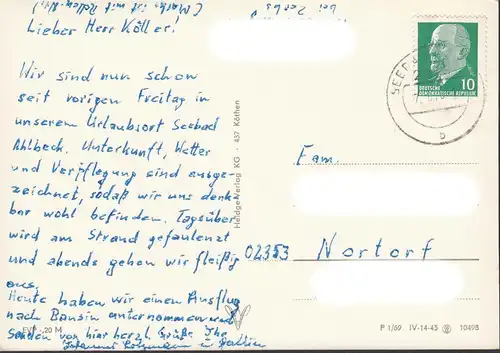 bei Zerbs
(Marke ist mit Rollen-Nr.)
Lieber Herr Köller!
Wir sind nun schon
seit vorigen Freitag in
unserem Urlaubsort Seebad
Ahlbeck. Unterkunft, Wetter
und Verpflegung sind ausge-
zeichnet, sodaß wir uns denk-
bar wohl befinden. Tagsüber
wird am Strand gefaulenzt
und abends gehen wir fleißig
aus.
Heute haben wir einen Ausflug
nach Bansin unternommen und
senden von hier herzl. Grüße Ihr
u.
Heldge-Verlag KG - 437 Köthen
SEEBAD
b
10
DEUTSCHE
DEMOKRATISCHE REPUBLIK
Fam.
02353 Nortorf
EVP -,20 M
P 1/69 IV-14-45 10498